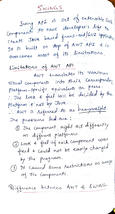 SWINGS
Swing API is set of extensible GUI
Components to ease developer's life
to create Java based front-end/GUI applications.
It is built on top of AWT API & it
overcomes most of its limitations.
Limitations of AWT API
AWT translates its various
visual components into their corresponding
platform-specific equivalents or peers.
The look & feel will be decided by the
platform & not by Java.
AWT is referred to as heavyweight.
The problems had are:
① The component might act differently
on different platforms
② Look & feel of each component were
fixed & could not be easily changed
by the programs.
③ It caused some restrictions on usage
of the components.
Difference between AWT & SWING